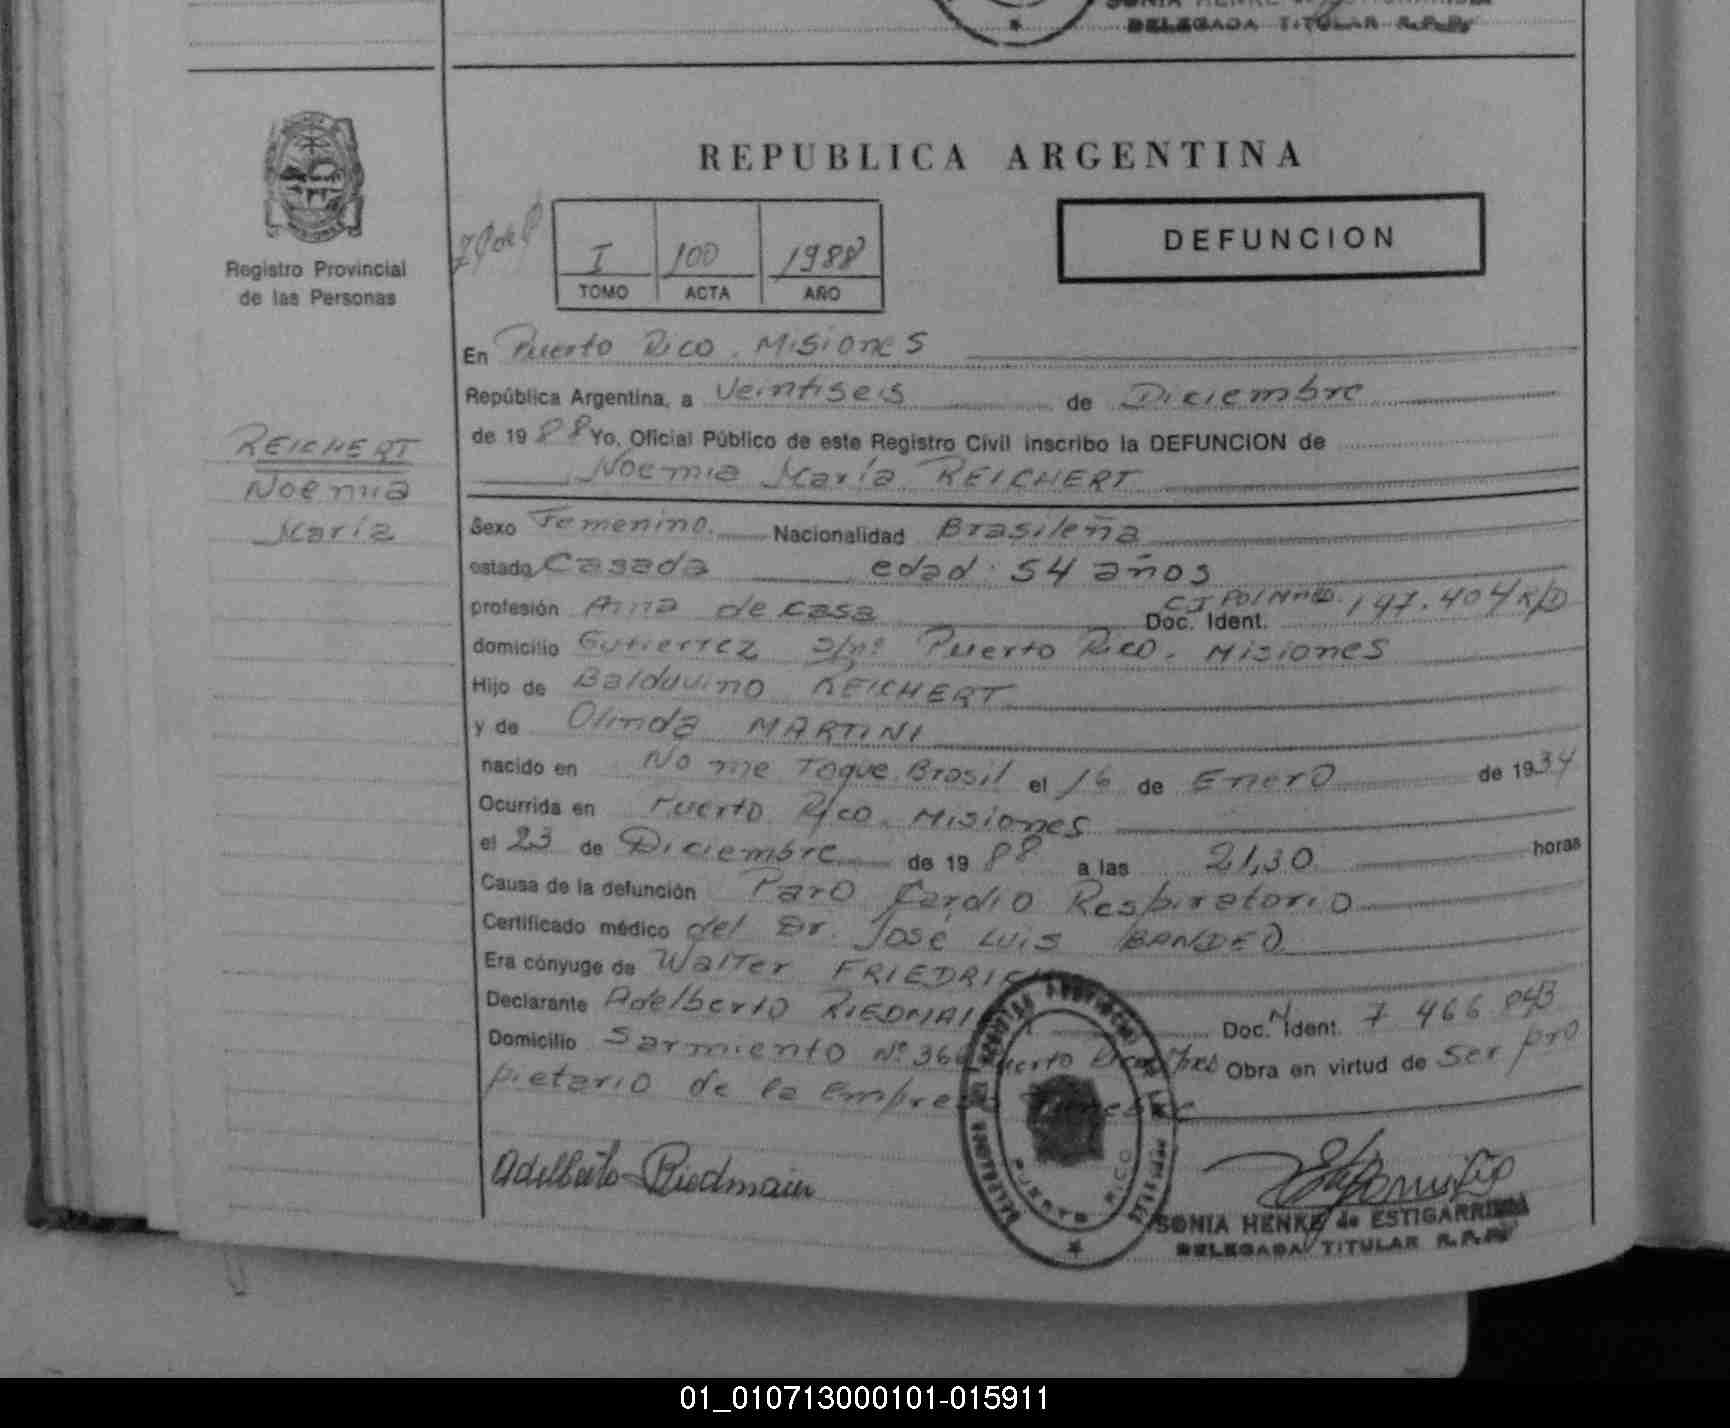 SONIA HENKE de ESTIGARRIBIA
DELEGADA TITULAR R.P.P.
Registro Provincial
de las Personas
REPUBLICA ARGENTINA
I 100 1988
TOMO ACTA AÑO
DEFUNCION
En Puerto Rico. Misiones
República Argentina, a Veintiseis de Diciembre
de 1988 Yo, Oficial Público de este Registro Civil inscribo la DEFUNCION de
Noemia María REICHERT
REICHERT
Noemia
María
Sexo Femenino. Nacionalidad Brasileña
estado Casada edad: 54 años
profesión Ama de casa Doc. Ident. C.I. Pol Mnes. 197.404 R/D
domicilio Gutierrez s/nº Puerto Rico. Misiones
Hijo de Balduvino REICHERT
y de Olinda MARTINI
nacido en No me Toque. Brasil el 16 de Enero de 1934
Ocurrida en Puerto Rico. Misiones
el 23 de Diciembre de 1988 a las 21,30 horas
Causa de la defunción Paro Cardio Respiratorio
Certificado médico del Dr. José Luis BANDEO
Era cónyuge de Walter FRIEDRICH
Declarante Adelberto RIEDMAIER Doc. Ident. 7 466 043
Domicilio Sarmiento Nº 366 Puerto Rico Mnes Obra en virtud de ser pro
pietario de la Empresa Funebre
Adelberto Riedmaier
PUERTO RICO
SONIA HENKE de ESTIGARRIBIA
DELEGADA TITULAR R.P.P.
01_010713000101-015911